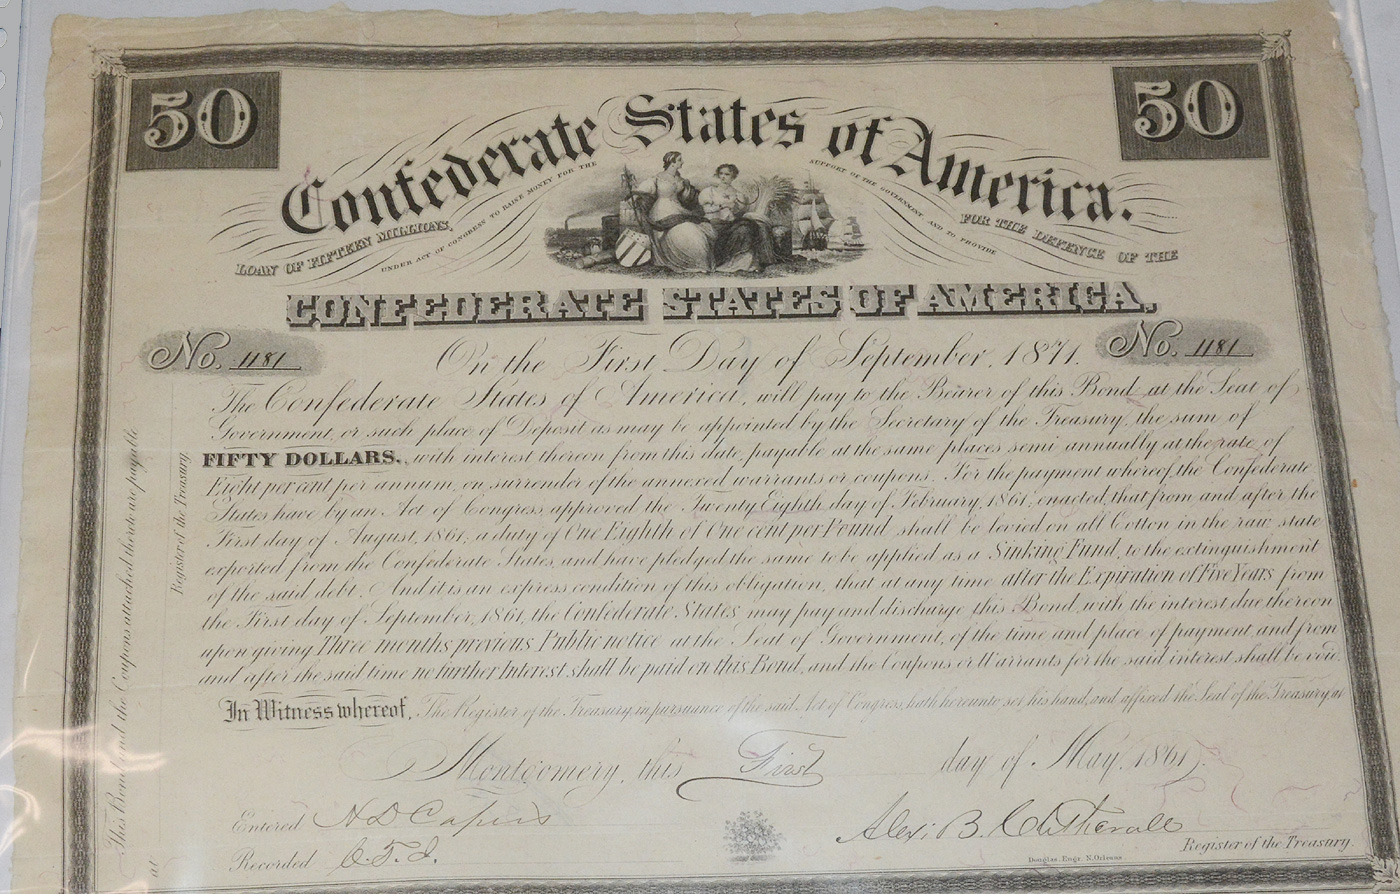 50
50
Confederate States of America.
LOAN OF FIFTEEN MILLIONS,
UNDER ACT OF CONGRESS TO RAISE MONEY FOR THE
SUPPORT OF THE GOVERNMENT AND TO PROVIDE
FOR THE DEFENCE OF THE
CONFEDERATE STATES OF AMERICA.
No. 1181
No. 1181
On the First Day of September, 1871.
The Confederate States of America, will pay to the Bearer of this Bond at the Seat of
Government, or such place of Deposit as may be appointed by the Secretary of the Treasury, the sum of
FIFTY DOLLARS, with interest thereon from this date, payable at the same places semi annually at the rate of
Eight per cent per annum, on surrender of the annexed warrants or coupons. For the payment whereof, the Confederate
States have by an Act of Congress, approved the Twenty Eighth day of February, 1861, enacted, that from and after the
First day of August, 1861, a duty of One Eighth of One cent per Pound shall be levied on all Cotton in the raw state
exported from the Confederate States, and have pledged the same to be applied as a Sinking Fund, to the extinguishment
of the said debt. And it is an express condition of this obligation, that at any time after the Expiration of Five Years from
the First day of September, 1861, the Confederate States may pay and discharge this Bond, with the interest due thereon
upon giving Three months previous Public notice at the Seat of Government, of the time and place of payment, and from
and after the said time no further Interest shall be paid on this Bond, and the Coupons or Warrants for the said interest shall be void.
In Witness whereof, The Register of the Treasury, in pursuance of the said Act of Congress, hath hereunto set his hand, and affixed the Seal of the Treasury, at
Montgomery, this First day of May, 1861.
Entered H D Capers
Alex. B. Clitherall
Register of the Treasury.
Recorded
Douglas. Engr. N. Orleans.
This Bond and the Coupons attached thereto are payable
at
Register of the Treasury.